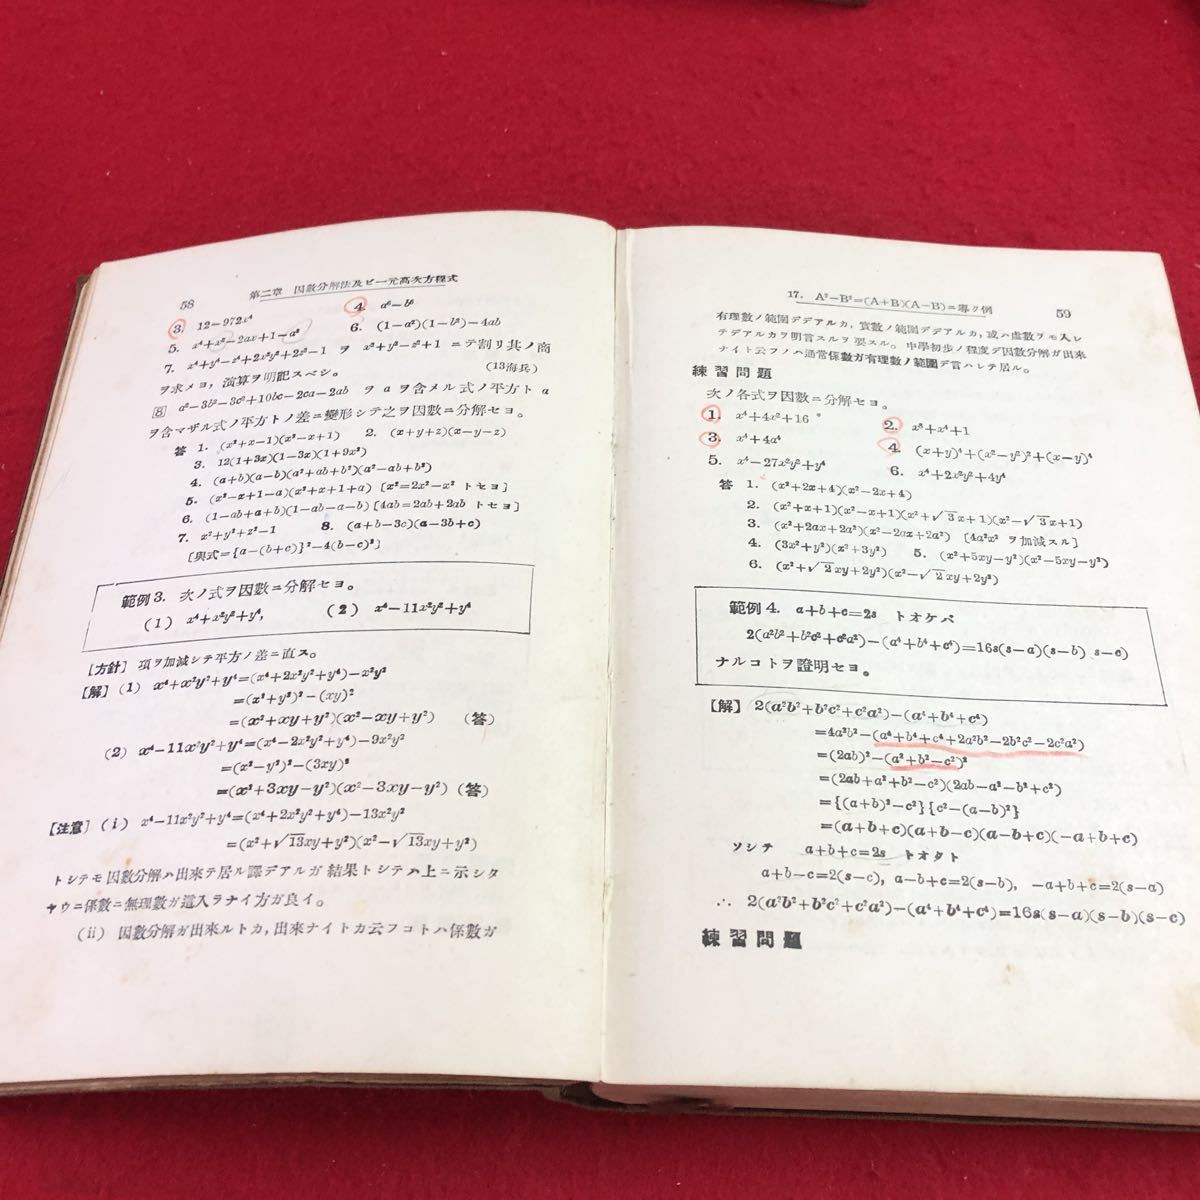 58 第二章 因數分解法及ビ一元高次方程式
3. 12−972x⁴ 4. a⁶−b⁶
5. x⁴+x²−2ax+1−a² 6. (1−a²)(1−b²)−4ab
7. x⁴+y⁴−z⁴+2x²y²+2z²−1 ヲ x²+y²−z²+1 ニテ割リ其ノ商
ヲ求メヨ, 演算ヲ明記スベシ。 (13海兵)
8 a²−3b²−3c²+10bc−2ca−2ab ヲ a ヲ含メル式ノ平方ト a
ヲ含マザル式ノ平方トノ差ニ變形シテ之ヲ因數ニ分解セヨ。
答 1. (x²+x−1)(x²−x+1) 2. (x+y+z)(x−y−z)
3. 12(1+3x)(1−3x)(1+9x²)
4. (a+b)(a−b)(a²+ab+b²)(a²−ab+b²)
5. (x²−x+1−a)(x²+x+1+a) [x²=2x²−x² トセヨ]
6. (1−ab+a+b)(1−ab−a−b) [4ab=2ab+2ab トセヨ]
7. x²+y²+z²−1 8. (a+b−3c)(a−3b+c)
[與式={a−(b+c)}²−4(b−c)²]
範例 3. 次ノ式ヲ因數ニ分解セヨ。
(1) x⁴+x²y²+y⁴, (2) x⁴−11x²y²+y⁴
[方針] 項ヲ加減シテ平方ノ差ニ直ス。
[解] (1) x⁴+x²y²+y⁴=(x⁴+2x²y²+y⁴)−x²y²
=(x²+y²)²−(xy)²
=(x²+xy+y²)(x²−xy+y²) (答)
(2) x⁴−11x²y²+y⁴=(x⁴−2x²y²+y⁴)−9x²y²
=(x²−y²)²−(3xy)²
=(x²+3xy−y²)(x²−3xy−y²) (答)
[注意] (i) x⁴−11x²y²+y⁴=(x⁴+2x²y²+y⁴)−13x²y²
=(x²+√13xy+y²)(x²−√13xy+y²)
トシテモ因數分解ハ出來テ居ル譯デアルガ結果トシテハ上ニ示シタ
ヤウニ係數ニ無理數ガ這入ラナイ方ガ良イ。
(ii) 因數分解ガ出來ルトカ, 出來ナイトカ云フコトハ係數ガ
17. A²−B²=(A+B)(A−B)ニ導ク例 59
有理數ノ範圍デデアルカ, 實數ノ範圍デデアルカ, 或ハ虛數ヲモ入レ
テデアルカヲ明言スルヲ要スル。中學初步ノ程度デ因數分解ガ出來
ナイト云フノハ通常係數ガ有理數ノ範圍デ言ハレテ居ル。
練習問題
次ノ各式ヲ因數ニ分解セヨ。
1. x⁴+4x²+16 2. x⁸+x⁴+1
3. x⁴+4a⁴ 4. (x+y)⁴+(x²−y²)²+(x−y)⁴
5. x⁴−27x²y²+y⁴ 6. x⁴+2x²y²+4y⁴
答 1. (x²+2x+4)(x²−2x+4)
2. (x²+x+1)(x²−x+1)(x²+√3x+1)(x²−√3x+1)
3. (x²+2ax+2a²)(x²−2ax+2a²) [4a²x² ヲ加減スル]
4. (3x²+y²)(x²+3y²) 5. (x²+5xy−y²)(x²−5xy−y²)
6. (x²+√2xy+2y²)(x²−√2xy+2y²)
範例 4. a+b+c=2s トオケバ
2(a²b²+b²c²+c²a²)−(a⁴+b⁴+c⁴)=16s(s−a)(s−b)(s−c)
ナルコトヲ證明セヨ。
[解] 2(a²b²+b²c²+c²a²)−(a⁴+b⁴+c⁴)
=4a²b²−(a⁴+b⁴+c⁴+2a²b²−2b²c²−2c²a²)
=(2ab)²−(a²+b²−c²)²
=(2ab+a²+b²−c²)(2ab−a²−b²+c²)
={(a+b)²−c²}{c²−(a−b)²}
=(a+b+c)(a+b−c)(a−b+c)(−a+b+c)
ソシテ a+b+c=2s トオタト
a+b−c=2(s−c), a−b+c=2(s−b), −a+b+c=2(s−a)
∴ 2(a²b²+b²c²+c²a²)−(a⁴+b⁴+c⁴)=16s(s−a)(s−b)(s−c)
練習問題